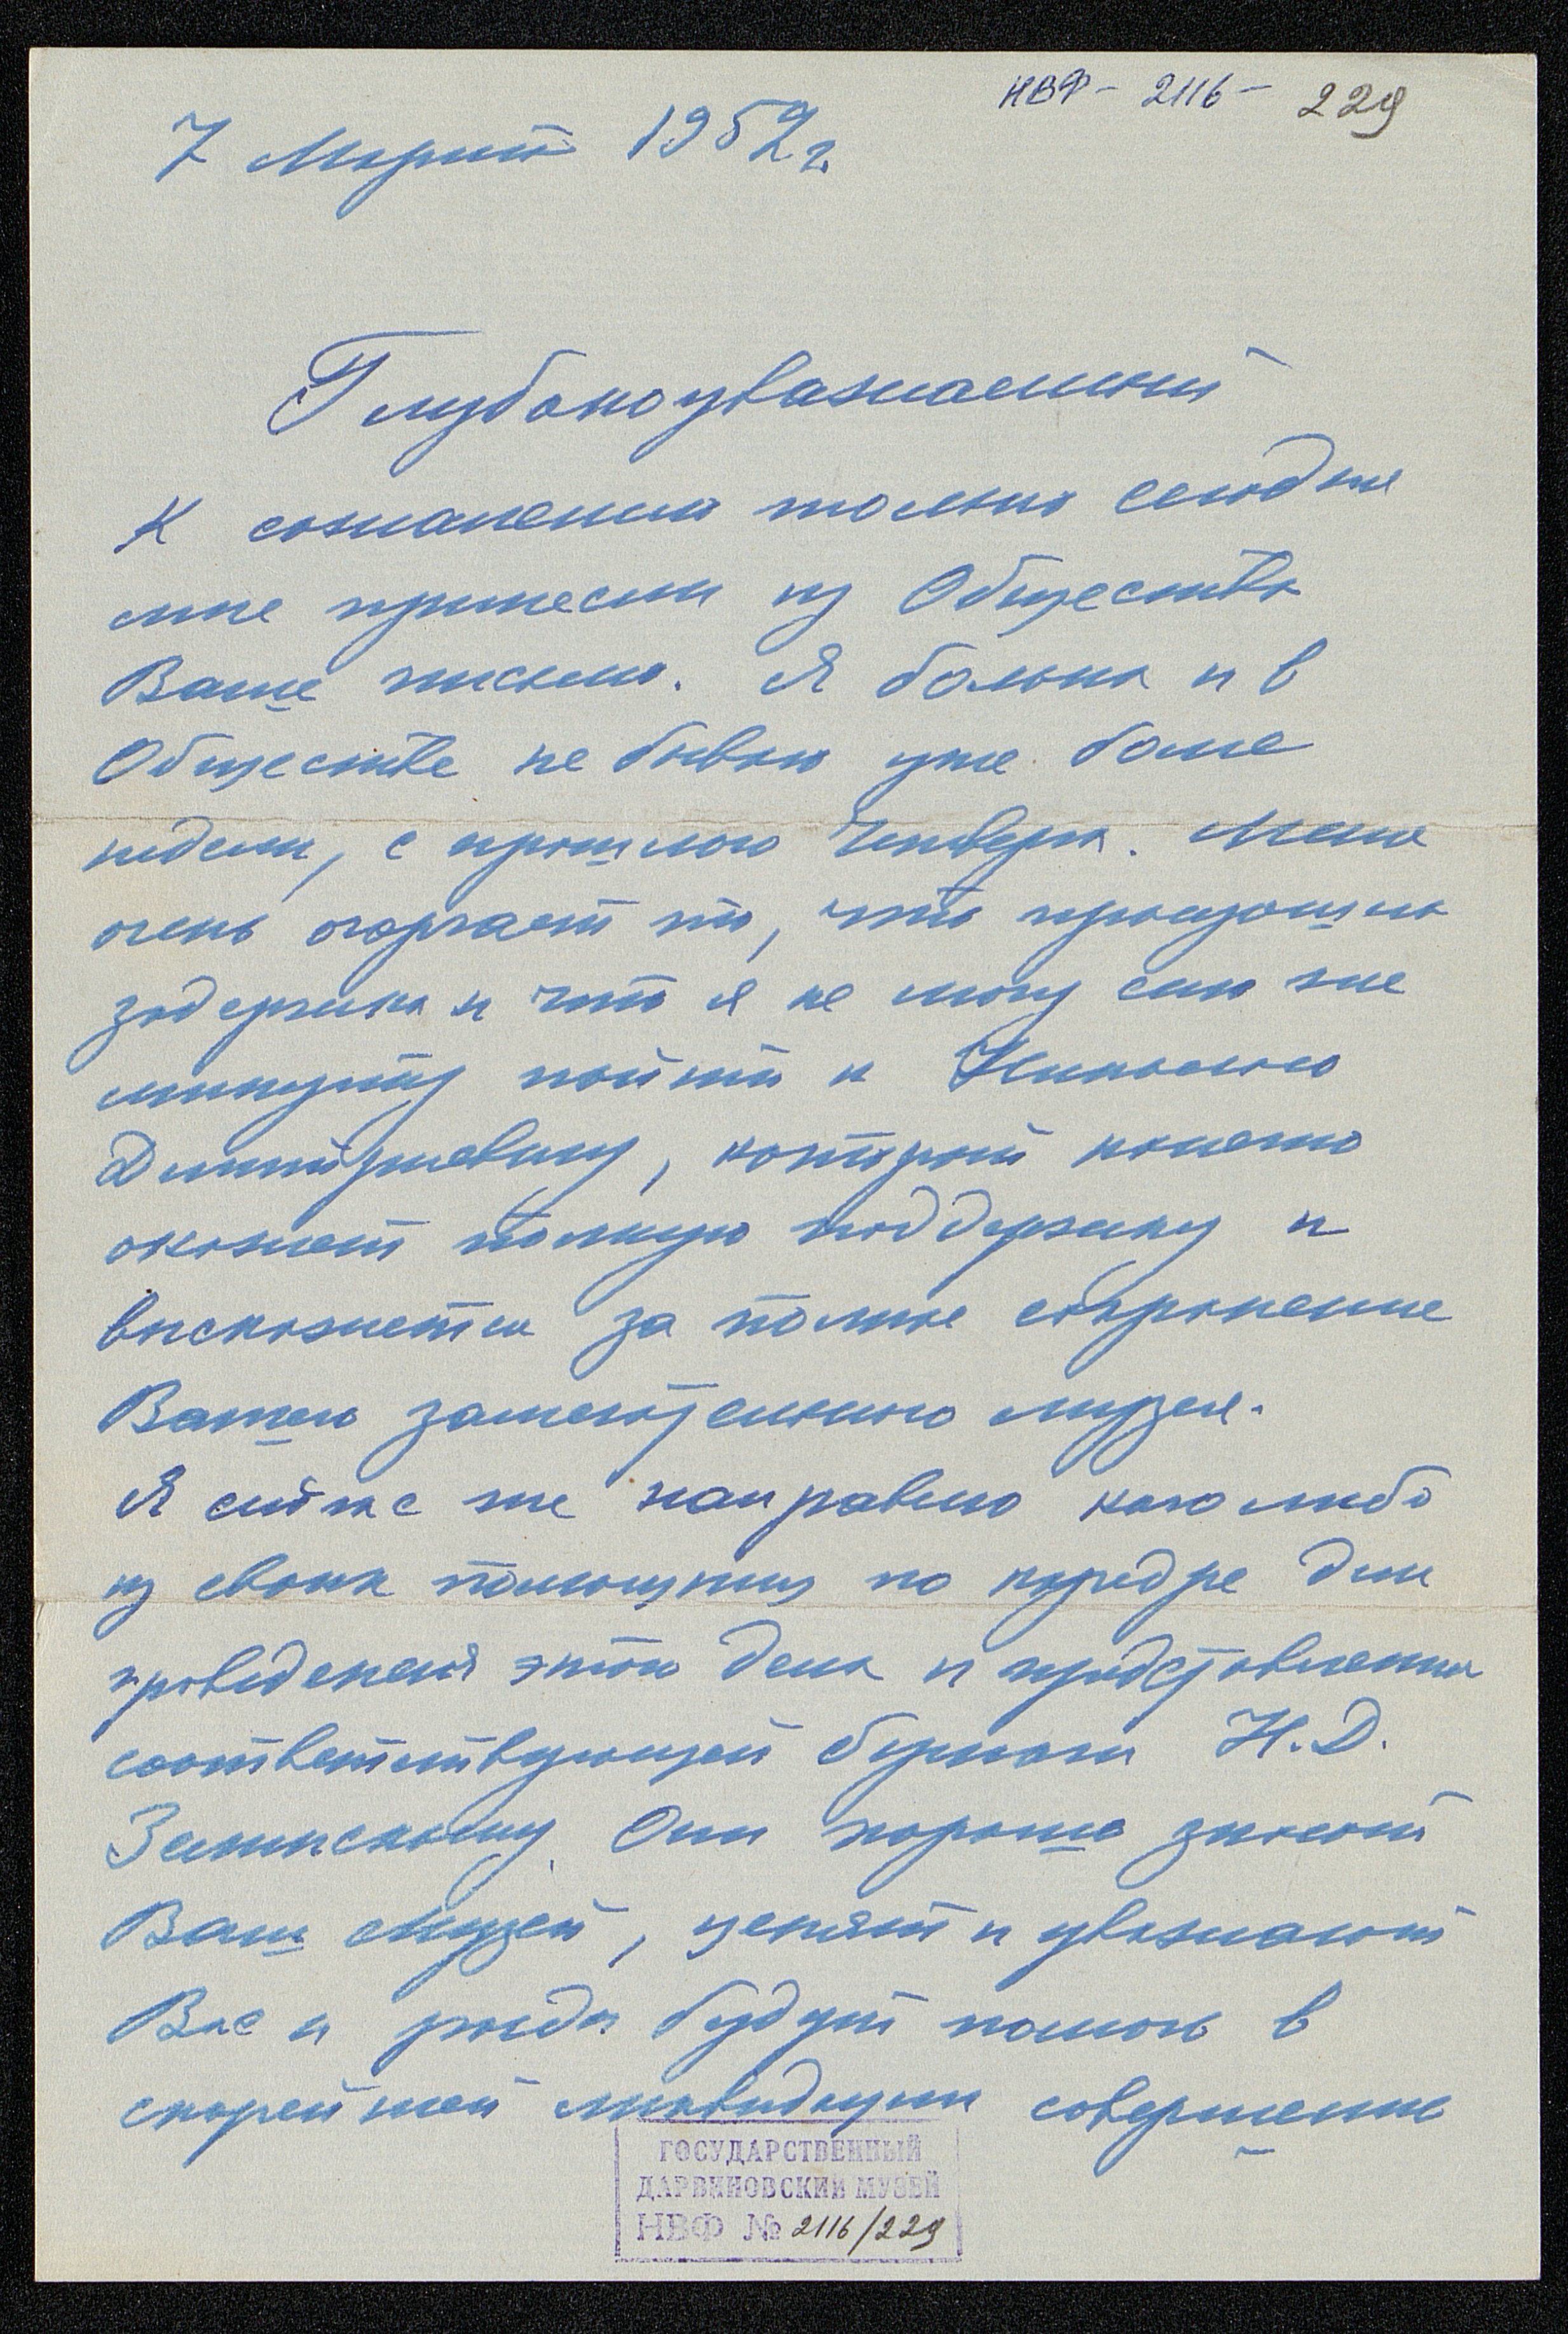 НВФ - 2116 - 229
7 Марта 1952 г.
Глубокоуважаемый
К сожалению только сегодня
мне принесли из Общества
Ваше письмо. Я больна и в
Обществе не бываю уже более
недели, с прошлого четверга. Меня
очень огорчает то, что произошла
задержка и что я не могу сию же
минуту пойти к Николаю
Дмитриевичу, который конечно
окажет полную поддержку и
выскажется за полное сохранение
Вашего замечательного музея.
Я сейчас же направлю кого либо
из своих помощниц по кафедре для
проведения этого дела и представления
соответствующей бумаги Н.Д.
Зелинскому. Они хорошо знают
Ваш Музей, ценят и уважают
Вас и рады будут помочь в
скорейшей ликвидации совершенно
ГОСУДАРСТВЕННЫЙ
ДАРВИНОВСКИЙ МУЗЕЙ
НВФ № 2116/229